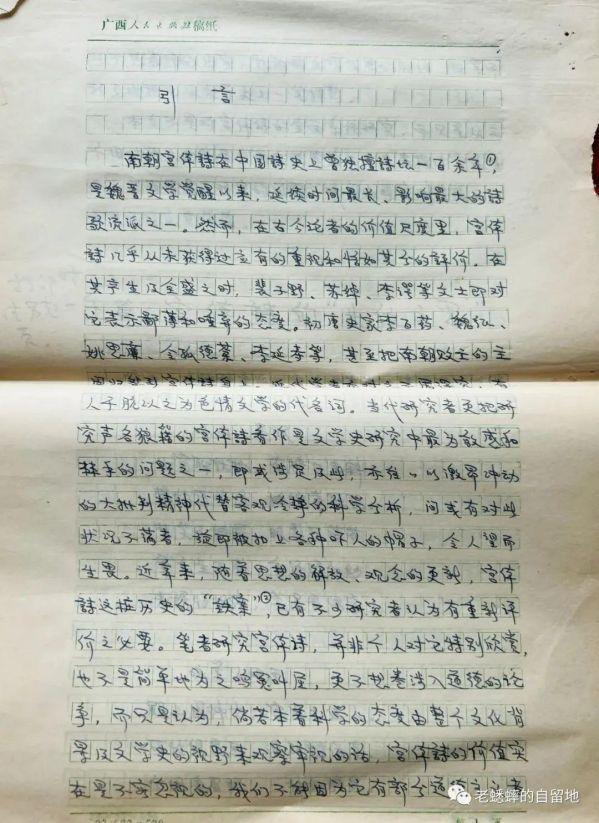 广西人民出版社稿纸
引 言
南朝宫体詩在中国詩史上曾独擅詩坛一百余年①，
是魏晋文学觉醒以来，延续时间最长、影响最大的詩
歌流派之一。然而，在古今论者的价值尺度里，宫体
詩几乎从未获得过应有的重視和恰如其分的評价。在
其孳生及全盛之时，裴子野、苏绰、李谔等文士即对
它表示鄙薄和唾弃的态度。初唐史家李百药、魏征、
姚思廉、令狐德棻、李延寿等，甚至把南朝败亡的主
人乎脱以之为色情文学的代名词。当代研究者更把研
究声名狼籍的宫体詩看作是文学史研究中最为敏感和
棘手的问题之一，即或涉足及此，亦往以激昂冲动
的大批判精神代替客观冷静的科学分析，间或有对此
状况不满者，旋即被扣上各种吓人的帽子，令人望而
生畏。近年来，随着思想的解放、观念的更新，宫体
詩这桩历史的“铁案”②，已有不少研究者认为有重新评
价之必要。笔者研究宫体詩，并非个人对它特别欣赏，
也不是简单地为之鸣冤叫屈，更不想卷涉入道德的论
争，而只是认为，倘若本着科学的态度由整个文化背
景及文学史的視野来观察审視的话，宫体詩的价值实
在是不容忽視的，我们不能因为它有部分
老蟋蟀的自留地